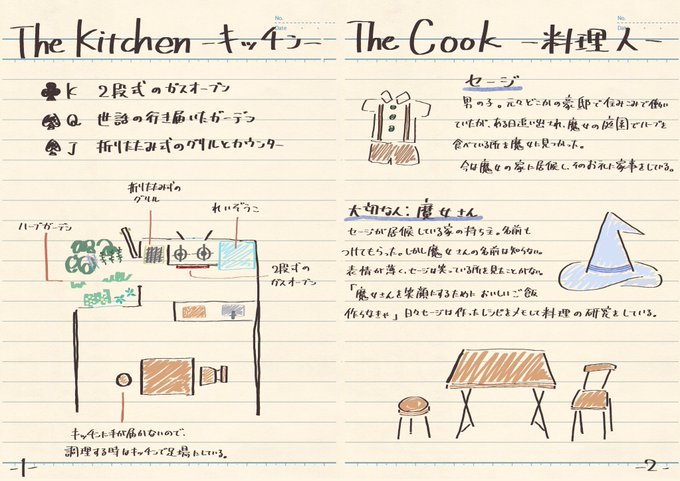 No.
Date
The Kitchen -キッチン-
♣K 2段式のガスオーブン
♠Q 世話の行き届いたガーデン
♠J 折りたたみ式のグリルとカウンター
折りたたみ式の
グリル
れいぞうこ
ハーブガーデン
2段式の
ガスオーブン
キッチンに手が届かないので、
調理する時はキッチンで足場にしている。
-1-
No.
Date
The Cook -料理人-
セージ
男の子。元々どこかの豪邸で住みこみで働い
ていたが、ある日追い出され、魔女の庭園でハーブを
食べている所を魔女に見つかった。
今は魔女の家に居候し、そのお礼に家事をしている。
大切な人:魔女さん
セージが居候している家の持ち主。名前も
つけてもらった。しかし魔女さんの名前は知らない。
表情が薄く、セージは笑っている所を見たことがない。
「魔女さんを笑顔にするためにおいしいご飯
作らなきゃ」日々セージは作ったレシピをメモして料理の研究をしている。
-2-